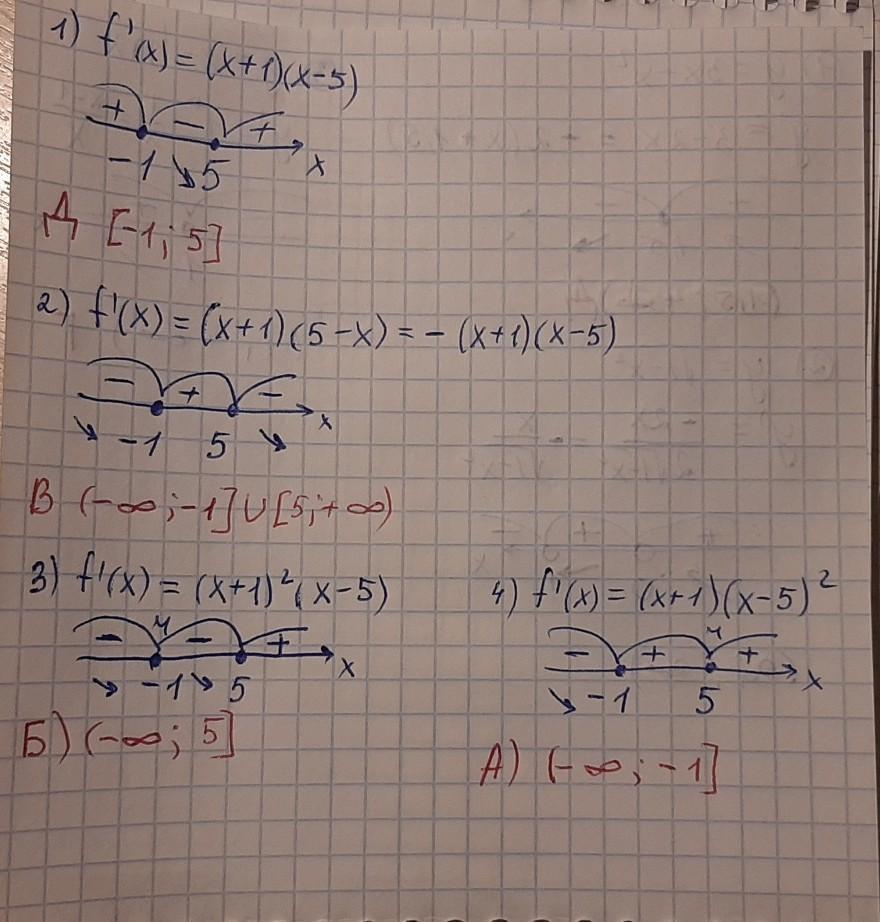 1) f'(x) = (x+1)(x-5)
+ - +
-1 ↘ 5 x
Д [-1; 5]
2) f'(x) = (x+1)(5-x) = - (x+1)(x-5)
- + -
↘ -1 5 ↘ x
В (-∞; -1]∪[5; +∞)
3) f'(x) = (x+1)²(x-5)
- ч - +
↘ -1 ↘ 5 x
Б) (-∞; 5]
4) f'(x) = (x+1)(x-5)²
- + ч +
↘ -1 5 x
А) (-∞; -1]